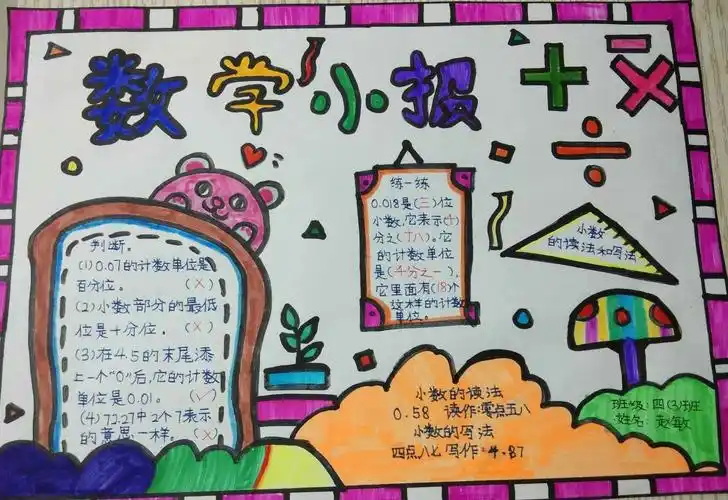 数学小报
判断。
(1)0.07的计数单位是
百分位。 (×)
(2)小数部分的最低
位是十分位。(×)
(3)在4.5的末尾添
上一个"0"后,它的计数
单位是0.01。 (√)
(4)72.27中2个7表示
的意思一样。(×)
练一练
0.018是(三)位
小数,它表示(千)
分之(十八)。它
的计数单位
是(千分之一),
它里面有(18)个
这样的计数
单位。
小数
的读法和写法
小数的读法
0.58 读作:零点五八
小数的写法
四点八七 写作:4.87
班级:四(3)班
姓名:赵敏